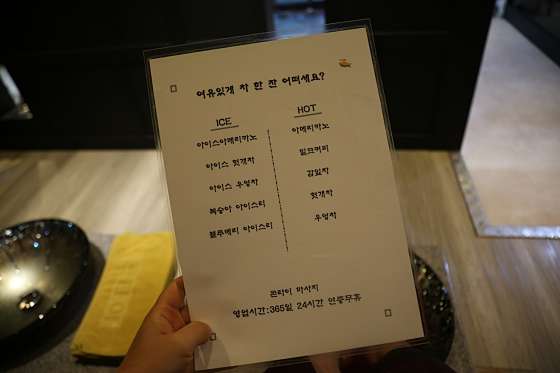 여유있게 차 한 잔 어떠세요?
ICE
아이스아메리카노
아이스 헛개차
아이스 우엉차
복숭아 아이스티
블루베리 아이스티
HOT
아메리카노
밀크커피
감잎차
헛개차
우엉차
퀸타이 마사지
영업시간:365일 24시간 연중무휴